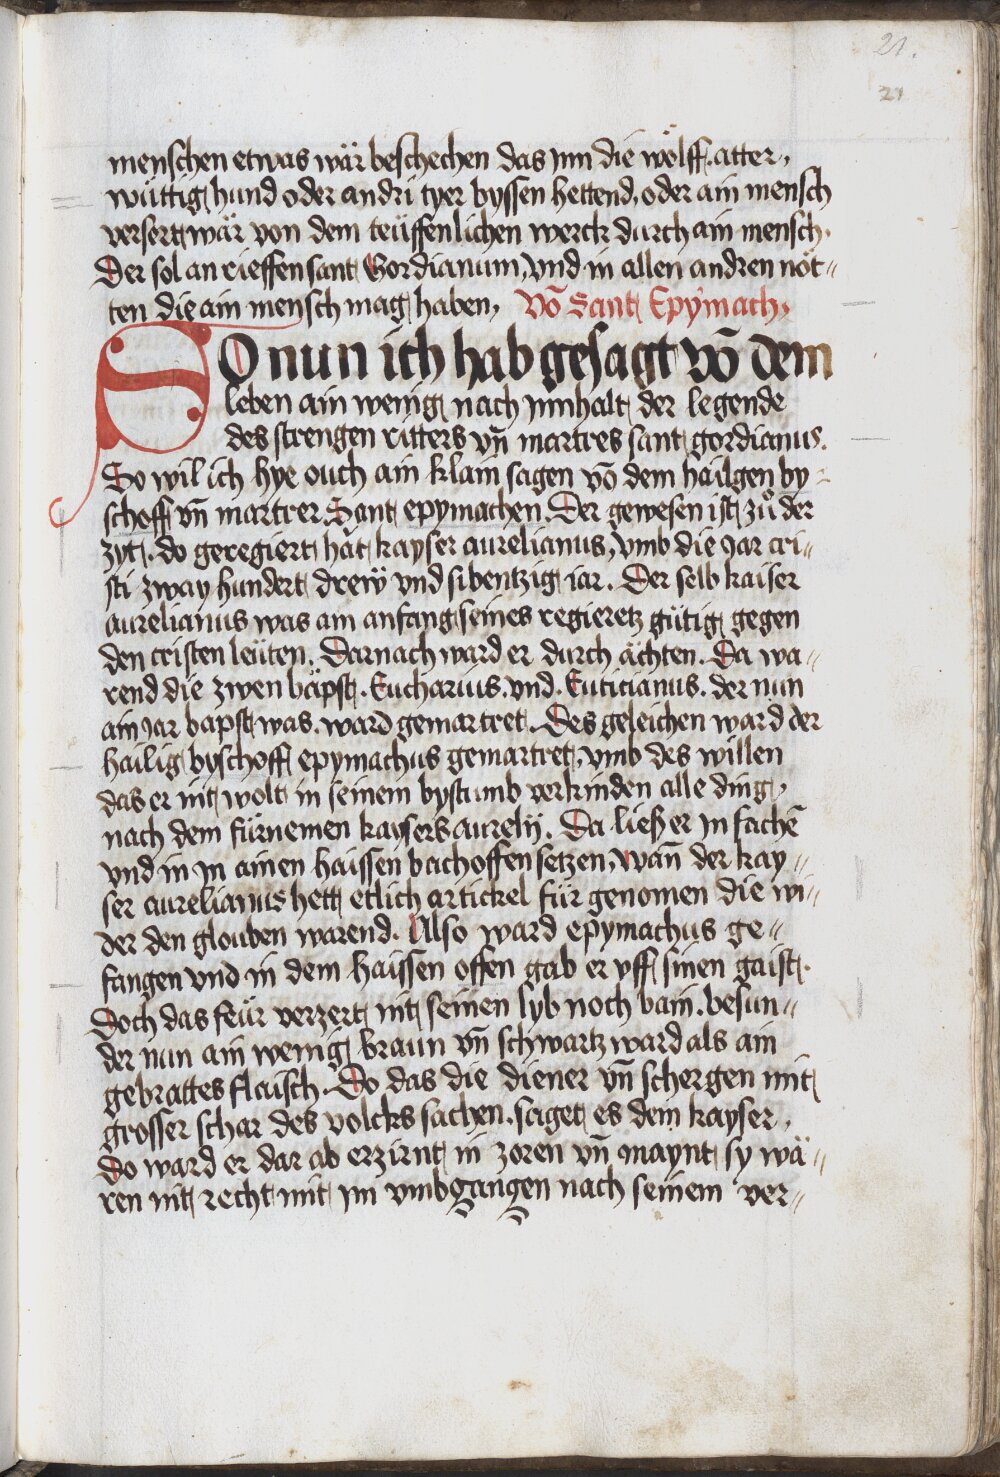 21.
21
menschen etwas wär beschechen das jnn die wölff. atter,
wüttig hund oder andri tyer byssen hettend, oder ain mensch
versert wär von dem teüffenlichen werck durch ain mensch.
Der sol an rieffen sant Gordianum, vnd in allen andren nöt⸗
ten die ain mensch mag haben, Vō Sant Epÿmach,
SO nun ich hab gesagt vō dem
leben ain wenig nach jnnhalt der legende
des strengen ritters vn̄ martres sant gordianus.
So wil ich hye ouch ain klain sagen vō dem hailgen by⸗
schoff vn̄ martrer. Sant epymachen. Der gewesen ist zů der
zyt. do geregiert hăt kayser aurelianus, vmb die Jar cri⸗
sti zway hundert drew̋ vnd sibentzig iar. Der selb kaiser
aurelianus was am anfang seines regieretz gütig gegen
den cristen leüten. Darnach ward er durch ächten. Da wa⸗
rend die zwen bäpst. Eucharius. vnd. Euticianus. der nun
ain Jar bapst was. ward gemartret. Des geleichen ward der
hailig byschoff epymachus gemartret, vmb des willen
das er nit wolt in seinem bystumb verkinden alle ding,
nach dem fürnemen kaysers aurelij. Da ließ er jn fachē
vnd in jn ainen haissen bachoffen setzen, wan̄ der kay⸗
ser aurelianus hett etlich artickel für genomen die wi⸗
der den glouben warend. Also ward epymachus ge⸗
fangen vnd in dem haissen offen gab er vff sinen gaist.
Doch das feür verzert nit seinen lyb noch bain. besun⸗
der nun ain wenig braun vn̄ schwartz ward als ain
gebrattes flaisch. Do das die diener vn̄ schergen mit
grosser schar des volcks sachen. saget es dem kayser,
do ward er dar ab erzirnt in zoren vn̄ maynt sy wä⸗
ren nit recht mit jm vmbgangen nach seinem ver⸗